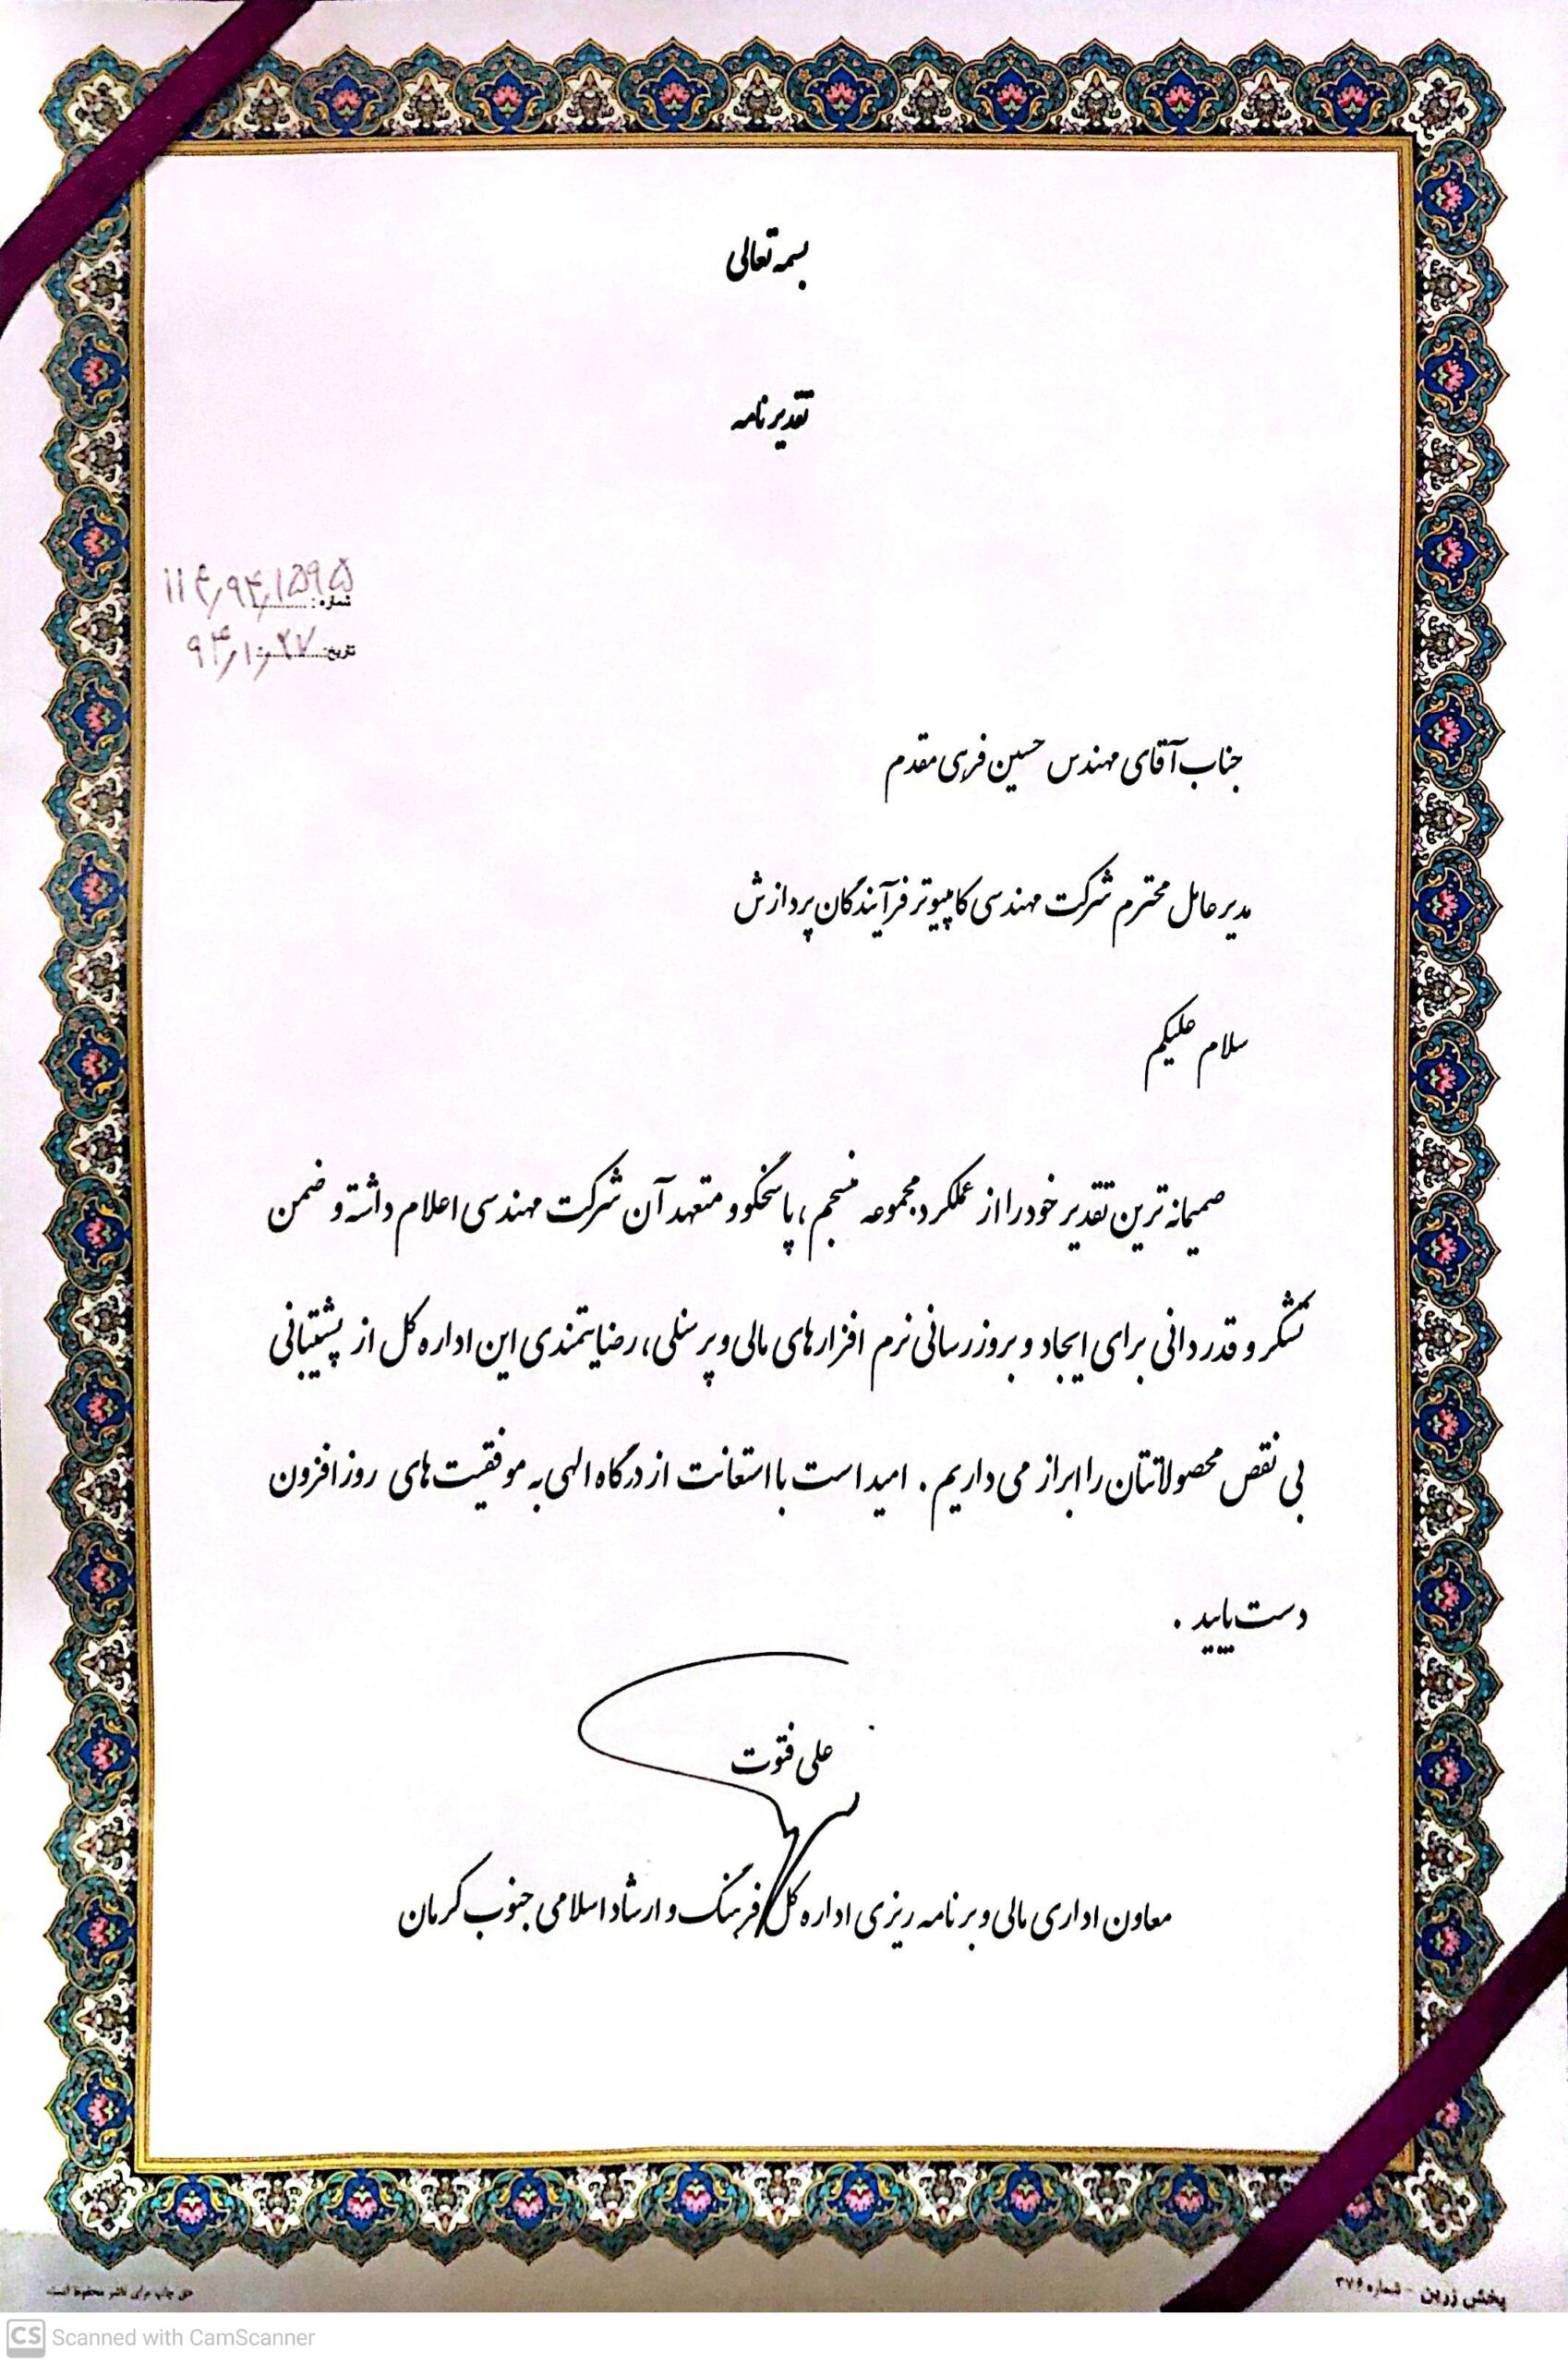 بسمه تعالی
تقدیرنامه
شماره: ۱۱۴٫۹۴٫۱۵۹۵
تاریخ: ۹۴٫۱۰٫۲۷
جناب آقای مهندس حسین فرهی مقدم
مدیرعامل محترم شرکت مهندسی کامپیوتر فرآیندگان پردازش
سلام علیکم
صمیمانه ترین تقدیر خود را از عملکرد مجموعه منسجم ، پاسخگو و متعهد آن شرکت مهندسی اعلام داشته و ضمن
تشکر و قدردانی برای ایجاد و بروزرسانی نرم افزارهای مالی و پرسنلی، رضایتمندی این اداره کل از پشتیبانی
بی نقص محصولاتتان را ابراز می داریم . امید است با استعانت از درگاه الهی به موفقیت های روزافزون
دست یابید .
علی فتوت
معاون اداری مالی و برنامه ریزی اداره کل فرهنگ و ارشاد اسلامی جنوب کرمان
حق چاپ برای ناشر محفوظ است
پخش زرین - شماره ۳۷۶
CS Scanned with CamScanner